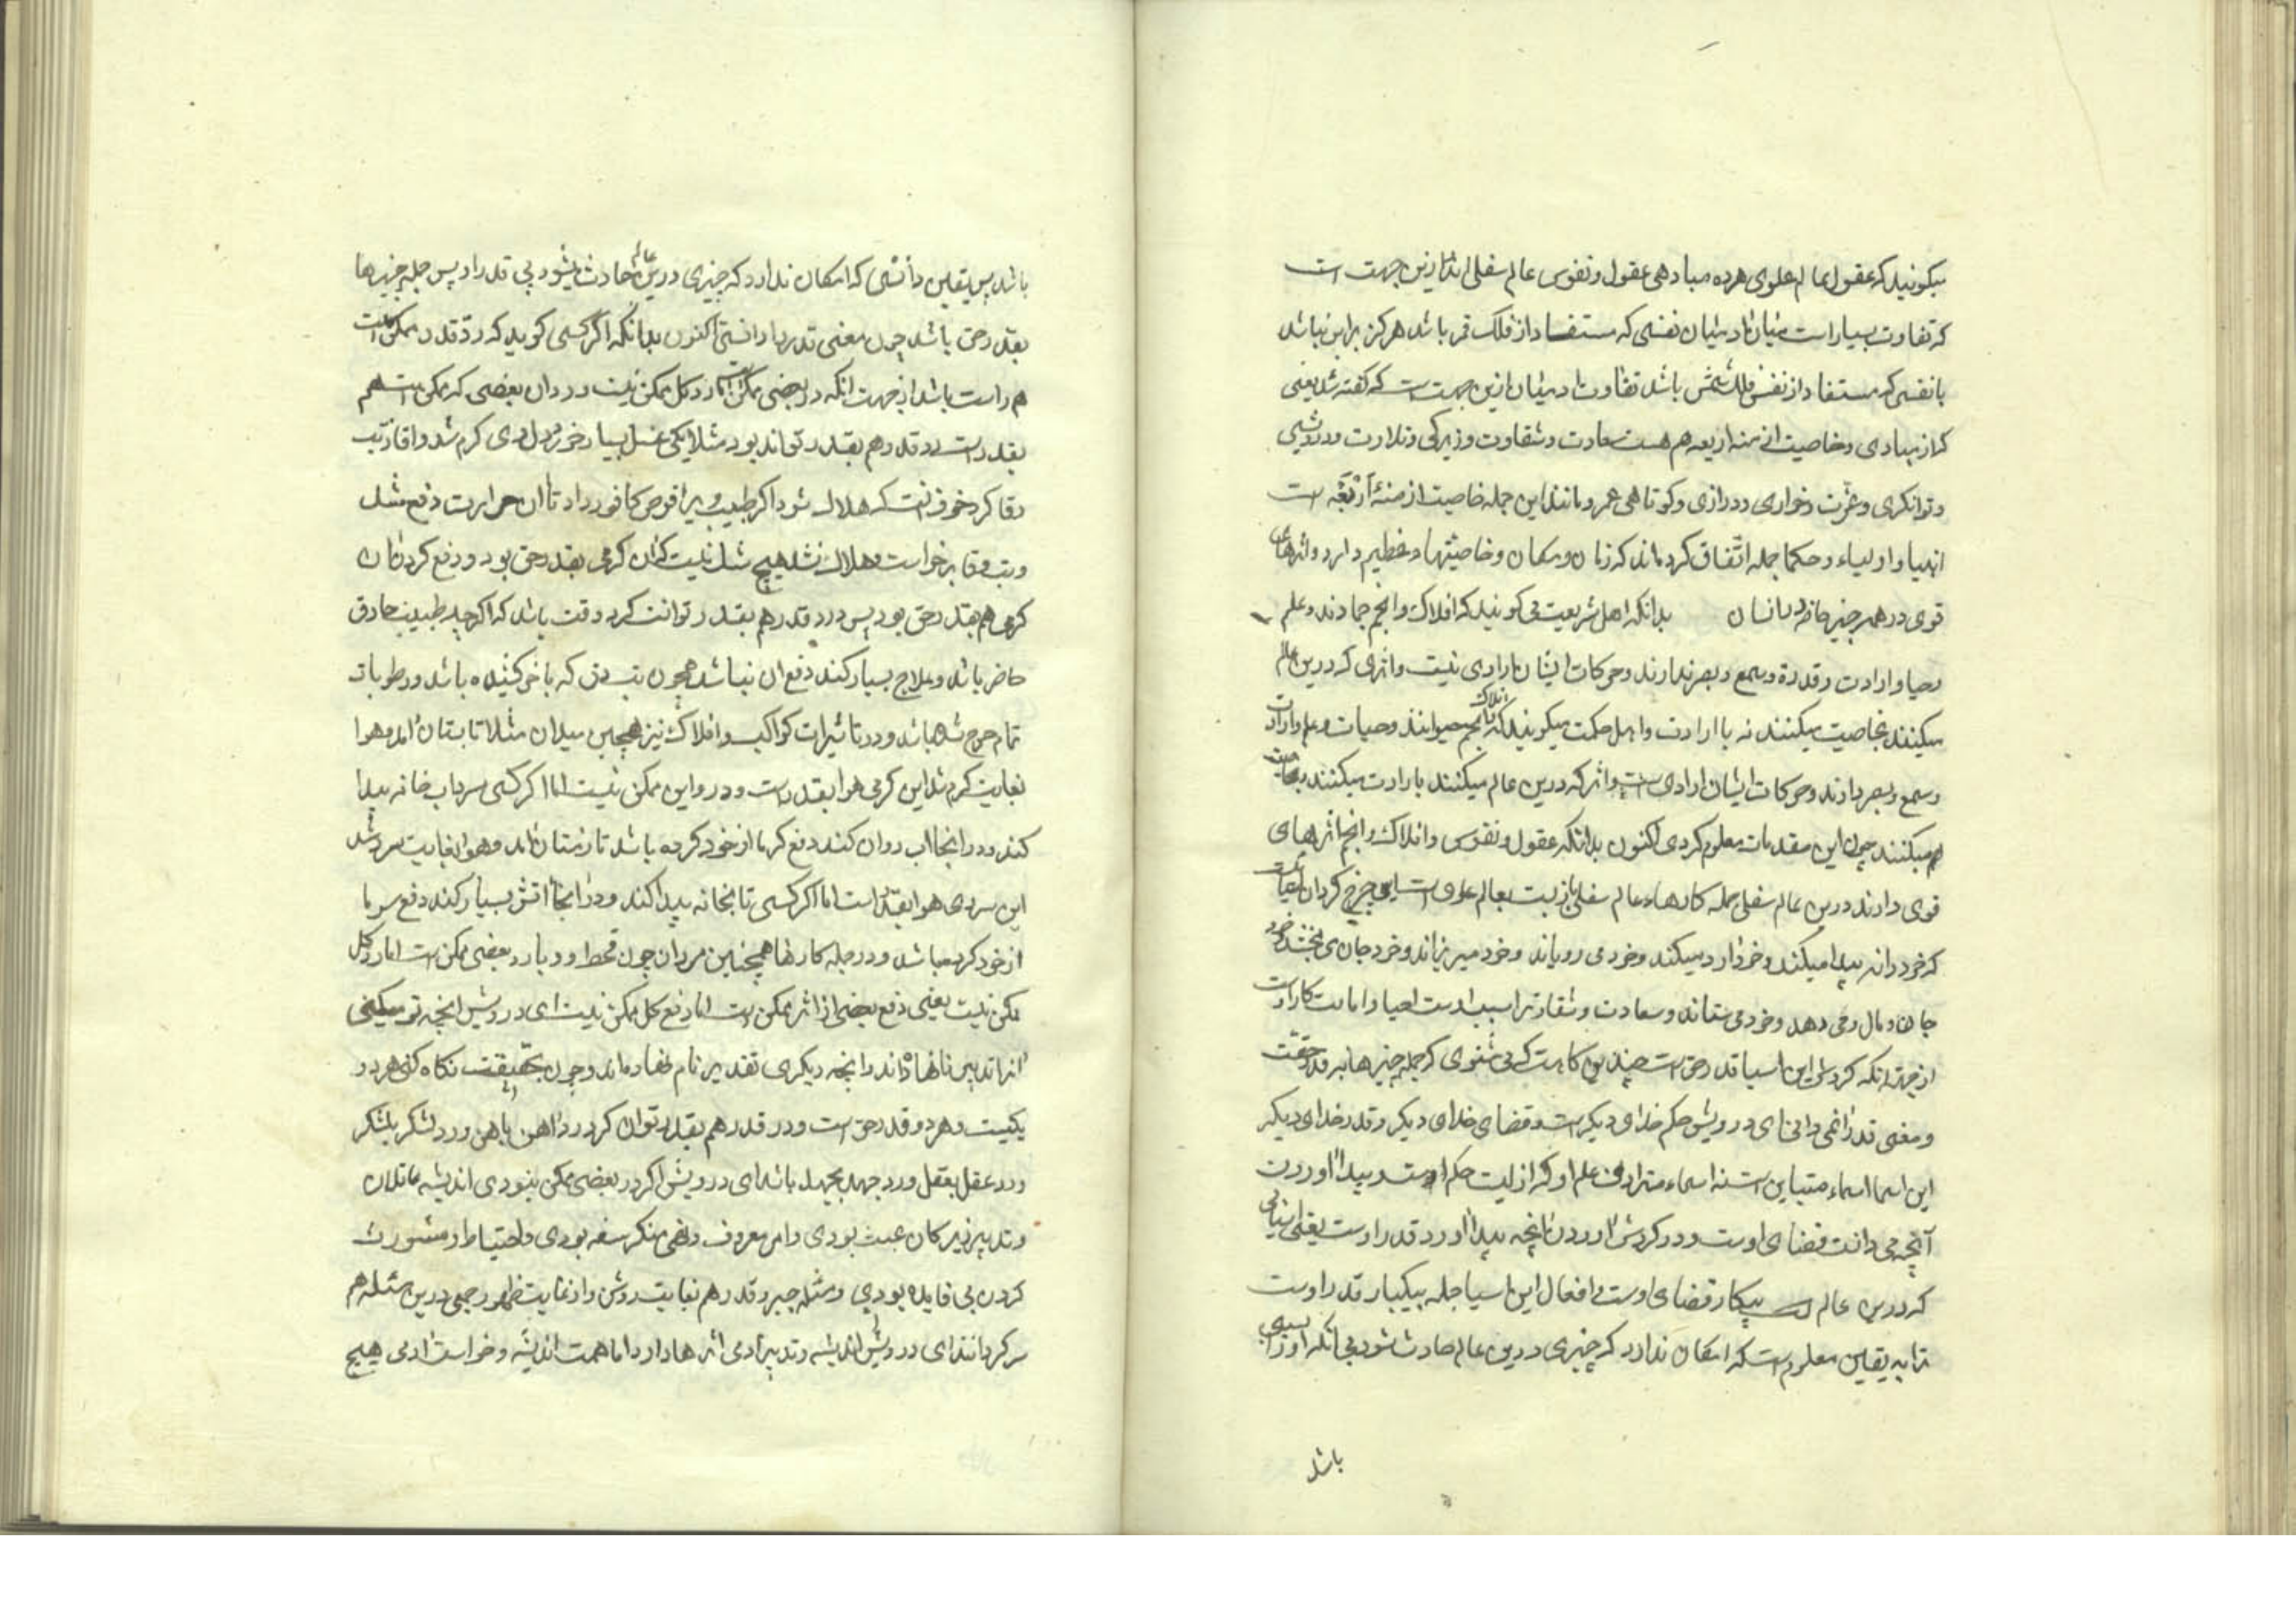 میکویند که عقول عالم علوی هرده مبادهی عقول و نفوس عالم سفلی اند ازین جهت است
که تفاوت بسیار است میان آدمیان نفسی که مستفاد از فلک قمر باشد هرکز برابر نباشد
با نفسی که مستفاد از نفس فلک شمس باشد تفاوت آدمیان ازین جهت است که کفته شد یعنی
که از مبادی و خاصیت ازمنه اربعه هم هست سعادت و شقاوت و زیرکی و بلادت و درویشی
و توانکری و عزت و خواری و درازی و کوتاهی عمر و مانند این جمله خاصیت ازمنۀ اربعه است
انبیا و اولیاء و حکما جمله اتفاق کرده اند که زمان و مکان و خاصیتها عظیم دارد و اثرهای
قوی در همه چیز خاصه در انسان بدانکه اهل شریعت می کویند که افلاک و انجم جمادند و علم
و حیا و ارادت و قدرة و سمع و بصر ندارند و حرکات ایشان ارادی نیست و اثری که درین عالم
میکنند بخاصیت میکنند نه با ارادت و اهل حکمت میکویند که افلاک و انجم حیوانند و حیات و علم و ارادت
و سمع و بصر دارند و حرکات ایشان ارادی است و اثر که درین عالم میکنند بارادت میکنند بخاصیت
هم میکنند چون این مقدمات معلوم کردی اکنون بدانکه عقول و نفوس و افلاک و انجم اثرهای
قوی دارند درین عالم سفلی جمله کارهاء عالم سفلی باز بست بعالم علوی است این چرخ کردان
که خود دانه پیدا میکند و خود آرد میکند و خود می رویاند و خود میریزاند و خود جان می بخشد خود
جاه و مال می دهد و خود می ستاند و سعادت و شقاوت را سبب اوست احیا و اماتت کار اوست
از جهت آنکه کردش این اسیا قدر حق است چندین کاهست که می شنوی که جمله چیزها به قدر حقست
و معنی قدر را نمی دانی ای درویش حکم خدای دیکر است و قضای خدای دیکر و قدر خدای دیکر
این اسما اسماء متباین است نه اسماء مترادف علم او که ازلیست حکم اوست و پیدا آوردن
آنچه می دانست قضای اوست و در کردش آوردن آنچه پیدا آورد قدر اوست یعنی
که درین عالم است بیکبار قضای اوست افعال این اسیا جمله بیکبار قدر اوست
ترا به یقین معلوم است که امکان ندارد که چیزی درین عالم حادث شود بی آنکه او را سببی
باشد
باشد پس بیقین دانستی که امکان ندارد که چیزی درین عالم حادث شود بی قدر او پس جمله چیزها
بقدر حق باشد چون معنی قدر را دانستی اکنون بدانکه اگر کسی کوید که رد قدر ممکن است
هم راست باشد از جهت آنکه در بعضی ممکن است اما در کل ممکن نیست و در آن بعضی که ممکن است هم
بقدر است رد قدر هم بقدر تواند بود مثلا یکی عسل بسیار خورد دل وی کرم شد و آغاز تب
دق کرد خوف آنست که هلاک شود اکر طبیب ویرا قرص کافور داد تا آن حرارت دفع شد
و تب دق برخواست و هلاک نشد هیچ شک نیست که آن کرمی بقدر حق بود و دفع کردن آن
کرمی هم بقدر حق بود پس رد قدر هم بقدر توانست کرد و وقت باشد که اکرچه طبیب حاذق
حاضر باشد و علاج بسیار کند دفع آن نباشد همچون تب دق که به آخر کشیده باشد و رطوبات
تمام خرج شده باشد و در تاثیرات کواکب و افلاک نیز همچنین میدان مثلا تابستان آمد و هوا
بغایت کرم شد این کرمی هوا بقدر است و رد این ممکن نیست اما اکر کسی سرداب خانه پیدا
کند و در آنجا آب روان کند دفع کرما از خود کرده باشد تا زمستان آمد و هوا بغایت سرد شد
این سردی هوا بقدر است اما اکر کسی تابخانه پیدا کند و در آنجا آتش بسیار کند دفع سرما
از خود کرده باشد و در جمله کارها همچنین میدان چون قحط و وبا رد بعضی ممکن است اما رد کل
ممکن نیست یعنی دفع بعضی از اثر ممکن است اما دفع کل ممکن نیست ای درویش آنچه تو میکنی
آنرا تدبیر نام نهاده اند و آنچه دیکری تقدیر نام نهاده اند و چون بحقیقت نکاه کنی هر دو
یکیست و هر دو قدر حق است و رد قدر هم بقدر توان کرد رد آهن بآهن و رد لشکر بلشکر
و رد عقل بعقل و رد جهد بجهد باشد ای درویش اکر در بعضی ممکن نبودی اندیشه عاقلان
و تدبیر زیرکان عبث بودی و امر معروف و نهی منکر سفه بودی و احتیاط و مشورت
کردن بی فایده بودی و مسئله جبر و قدر هم بغایت روشن و از غایت ظهور جمعی درین مسئله هم
سرکردانند ای درویش اندیشه و تدبیر آدمی اثرها دارد اما همت اندیشه و خواست آدمی هیچ